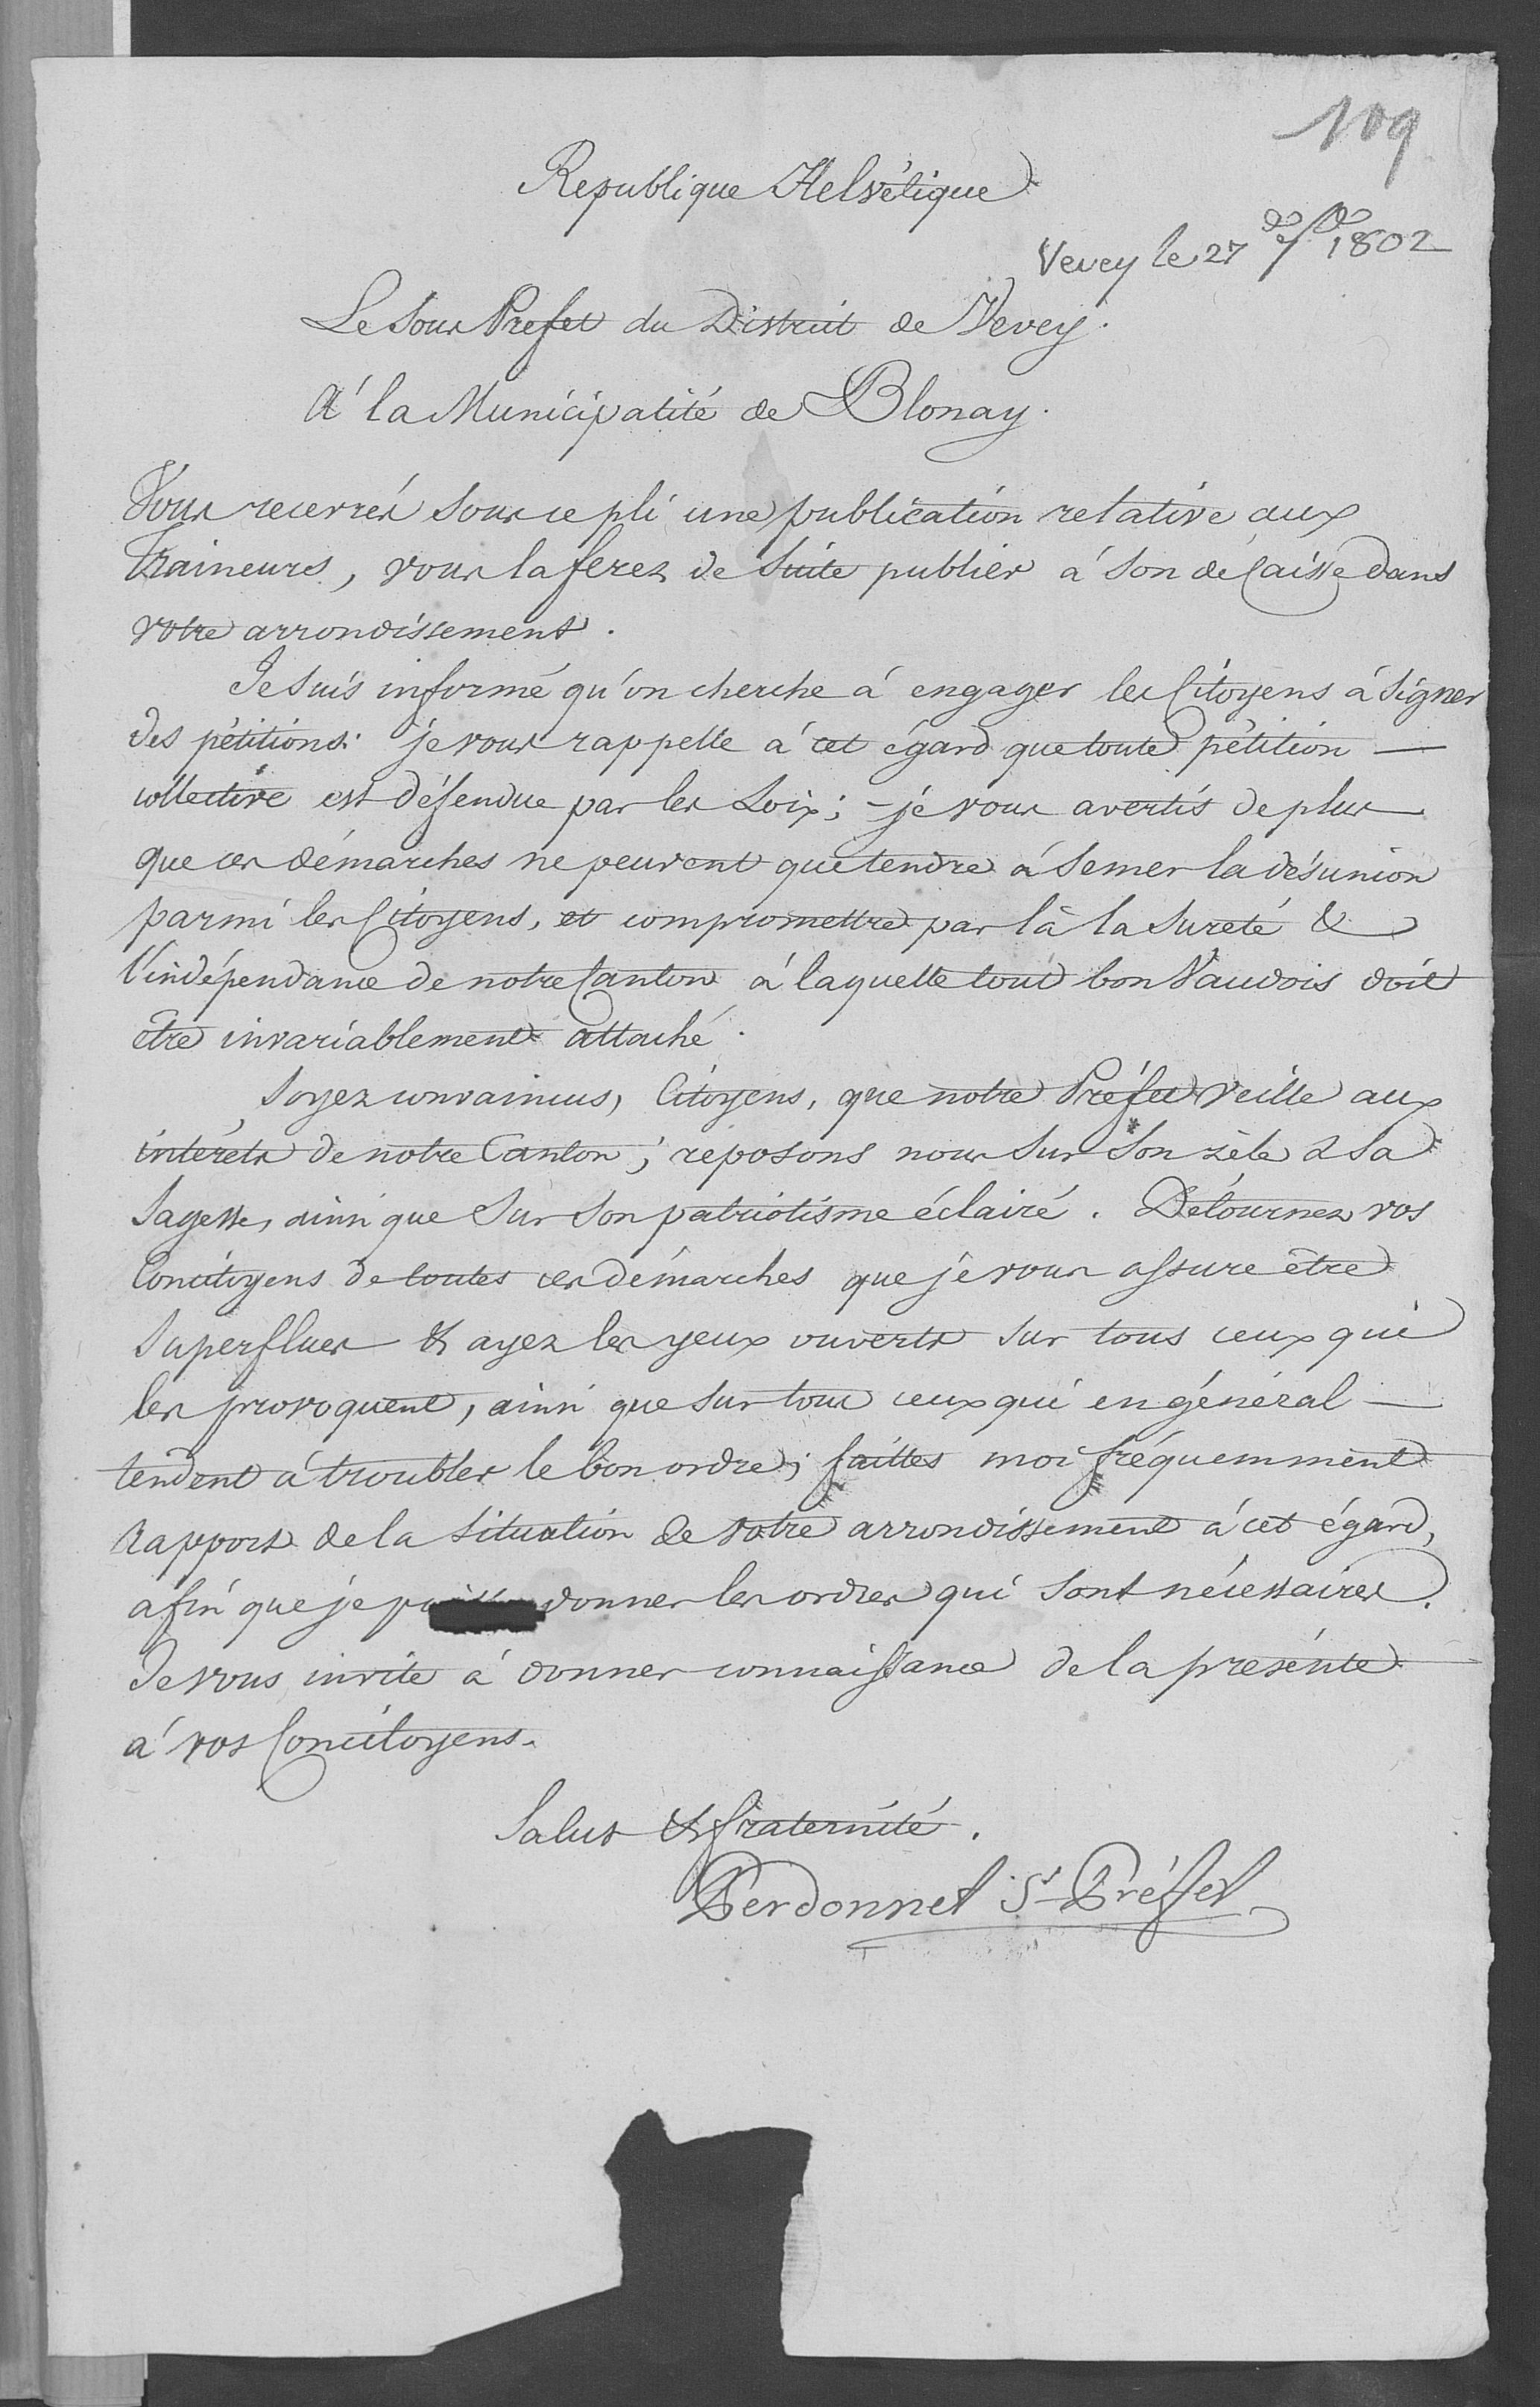 109
Republique Helvétique
Vevey le 27 1802
Le Sous Prefet du District de Vevey.
A la Municipalité de Blonay.
Vous recevrés sous ce pli une publication relative aux
traineurs, vous la ferez de suite publier à son de Caisse dans
votre arrondissement.
Je suis informé qu'on cherche à engager les Citoyens à signer
des pétitions: je vous rappelle à cet égard que toute pétition —
collective est défendue par les Loix; - je vous avertis de plus
que ces démarches ne peuvent que tendre à semer la désunion
parmi les Citoyens, et compromettre par là la sureté &
l'indépendance de notre Canton à laquelle tout bon Vaudois doit
être invariablement attaché.
Soyez convaincus, Citoyens, que notre Préfet veille aux
intérêts de notre Canton; reposons nous sur son zèle & sa
sagesse, ainsi que sur son patriotisme éclairé. Détournez vos
Concitoyens de toutes ces démarches que je vous assure être
superflues & ayez les yeux ouverts sur tous ceux qui
les provoquent, ainsi que sur tous ceux qui en général —
tendent à troubler le bon ordre; faittes moi fréquemment
rapport de la situation de votre arrondissement à cet égard,
afin que je puisse donner les ordres qui sont nécessaires.
Je vous invite à donner connaissance de la présente
à vos Concitoyens.
Salut & fraternité.
Perdonnet Ss-Préffet